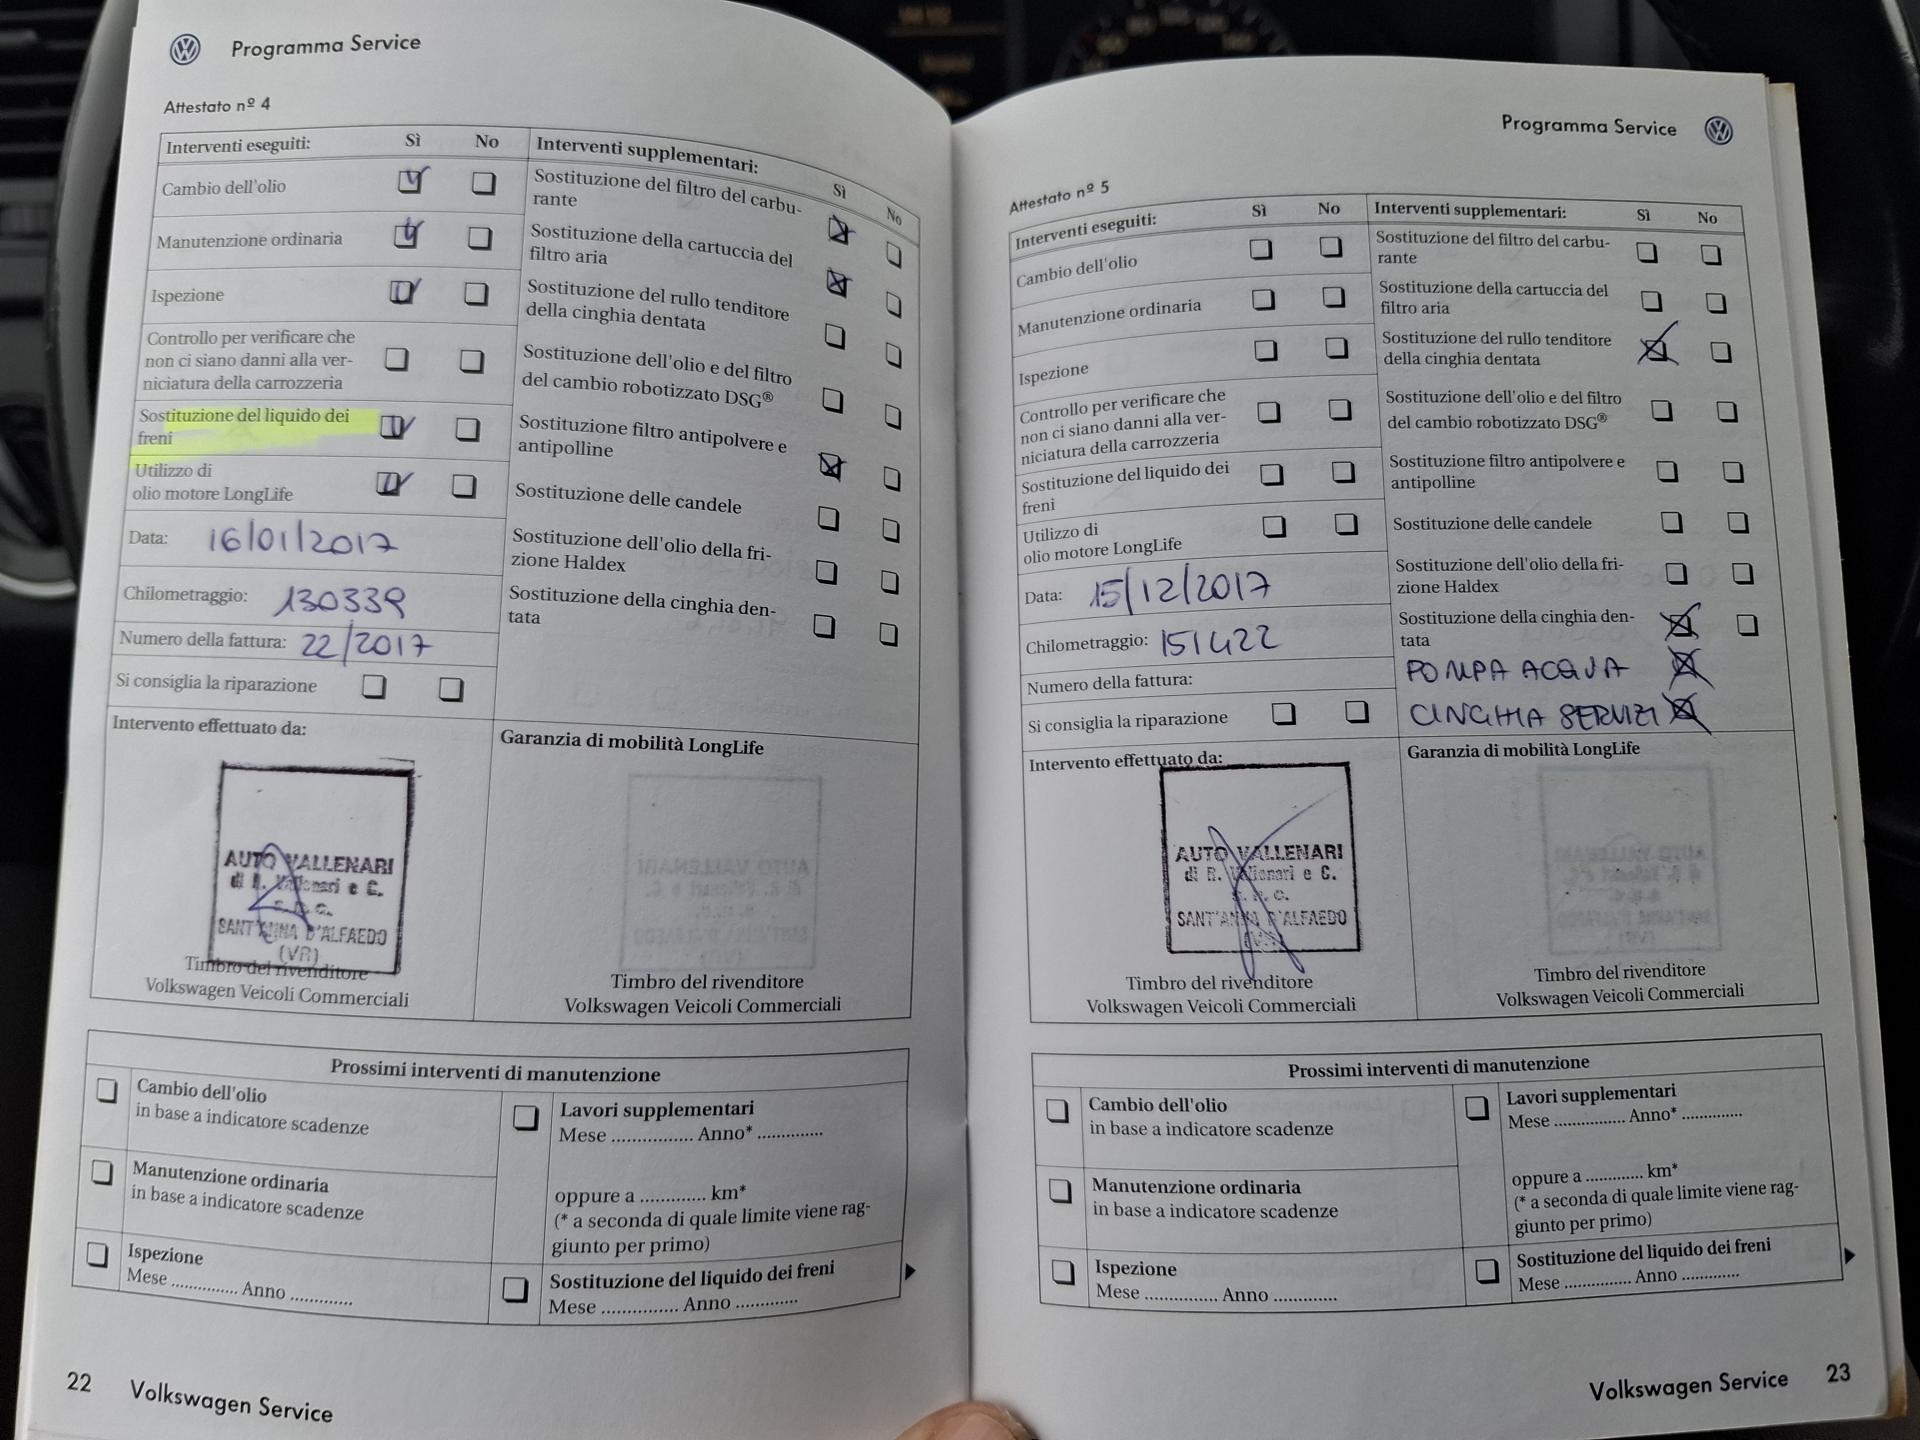 Programma Service
Attestato nº 4
Interventi eseguiti: Sì No
Cambio dell'olio
Manutenzione ordinaria
Ispezione
Controllo per verificare che
non ci siano danni alla ver-
niciatura della carrozzeria
Sostituzione del liquido dei
freni
Utilizzo di
olio motore LongLife
Data: 16/01/2017
Chilometraggio: 130339
Numero della fattura: 22/2017
Si consiglia la riparazione
Interventi supplementari: Sì No
Sostituzione del filtro del carbu-
rante
Sostituzione della cartuccia del
filtro aria
Sostituzione del rullo tenditore
della cinghia dentata
Sostituzione dell'olio e del filtro
del cambio robotizzato DSG®
Sostituzione filtro antipolvere e
antipolline
Sostituzione delle candele
Sostituzione dell'olio della fri-
zione Haldex
Sostituzione della cinghia den-
tata
Intervento effettuato da:
AUTO VALLENARI
di R. Vallenari e C.
S.N.C.
SANT'ANNA D'ALFAEDO
(VR)
Timbro del rivenditore
Volkswagen Veicoli Commerciali
Garanzia di mobilità LongLife
Timbro del rivenditore
Volkswagen Veicoli Commerciali
Prossimi interventi di manutenzione
Cambio dell'olio
in base a indicatore scadenze
Manutenzione ordinaria
in base a indicatore scadenze
Ispezione
Mese .............. Anno .............
Lavori supplementari
Mese ................. Anno* .............
oppure a ............. km*
(* a seconda di quale limite viene rag-
giunto per primo)
Sostituzione del liquido dei freni
Mese ................ Anno .............
22 Volkswagen Service
Programma Service
Attestato nº 5
Interventi eseguiti: Sì No
Cambio dell'olio
Manutenzione ordinaria
Ispezione
Controllo per verificare che
non ci siano danni alla ver-
niciatura della carrozzeria
Sostituzione del liquido dei
freni
Utilizzo di
olio motore LongLife
Data: 15/12/2017
Chilometraggio: 151422
Numero della fattura:
Si consiglia la riparazione
Interventi supplementari: Sì No
Sostituzione del filtro del carbu-
rante
Sostituzione della cartuccia del
filtro aria
Sostituzione del rullo tenditore
della cinghia dentata
Sostituzione dell'olio e del filtro
del cambio robotizzato DSG®
Sostituzione filtro antipolvere e
antipolline
Sostituzione delle candele
Sostituzione dell'olio della fri-
zione Haldex
Sostituzione della cinghia den-
tata
POMPA ACQUA
CINGHIA SERVIZI
Intervento effettuato da:
AUTO VALLENARI
di R. Vallenari e C.
S.N.C.
SANT'ANNA D'ALFAEDO
(VR)
Timbro del rivenditore
Volkswagen Veicoli Commerciali
Garanzia di mobilità LongLife
Timbro del rivenditore
Volkswagen Veicoli Commerciali
Prossimi interventi di manutenzione
Cambio dell'olio
in base a indicatore scadenze
Manutenzione ordinaria
in base a indicatore scadenze
Ispezione
Mese ............... Anno .............
Lavori supplementari
Mese ................ Anno* .............
oppure a ............ km*
(* a seconda di quale limite viene rag-
giunto per primo)
Sostituzione del liquido dei freni
Mese .............. Anno ............
Volkswagen Service 23